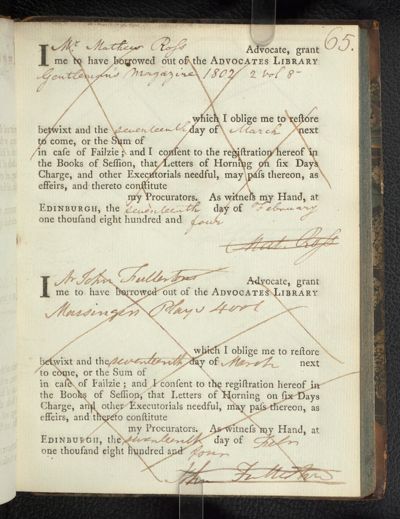 65.
I Mr. Mathew Ross Advocate, grant
me to have borrowed out of the ADVOCATES LIBRARY
Gentleman's Magazine 1802 2 vol 8o
which I oblige me to reſtore
betwixt and the seventeenth day of March next
to come, or the Sum of
in caſe of Failzie; and I conſent to the regiſtration hereof in
the Books of Seſſion, that Letters of Horning on ſix Days
Charge, and other Executorials needful, may paſs thereon, as
effeirs, and thereto conſtitute
my Procurators. As witneſs my Hand, at
EDINBURGH, the seventeenth day of February
one thouſand eight hundred and four
Mat. Ross
I Mr John Fullerton Advocate, grant
me to have borrowed out of the ADVOCATES LIBRARY
Massingers Plays 4 vol
which I oblige me to reſtore
betwixt and the seventeenth day of March next
to come, or the Sum of
in caſe of Failzie; and I conſent to the regiſtration hereof in
the Books of Seſſion, that Letters of Horning on ſix Days
Charge, and other Executorials needful, may paſs thereon, as
effeirs, and thereto conſtitute
my Procurators. As witneſs my Hand, at
EDINBURGH, the seventeenth day of Febry
one thouſand eight hundred and four
John Fullerton